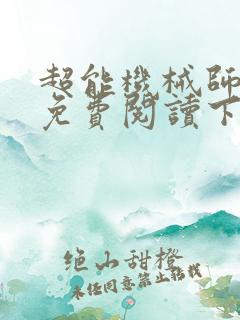 超能機械師
免費閱讀下
绝山甜橙
未经同意禁止转载